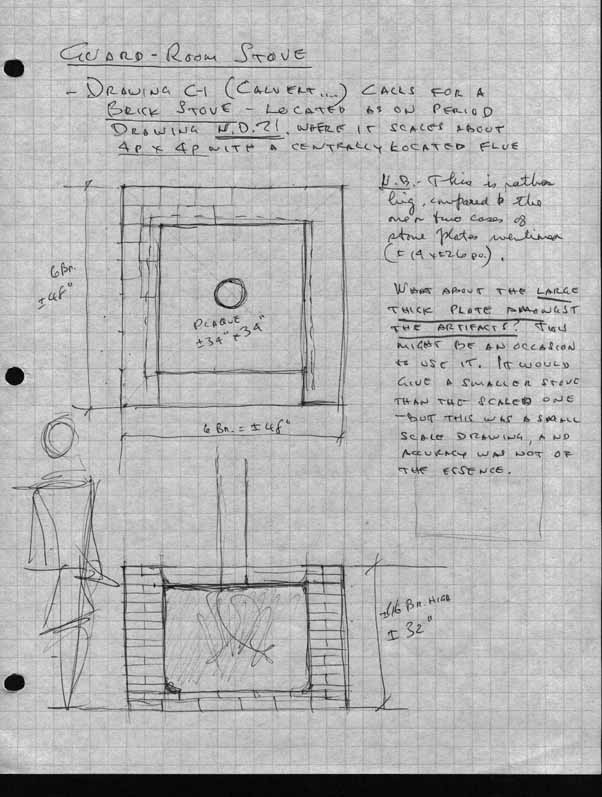 GUARD-ROOM STOVE
- DRAWING C-1 (CALVERT....) CALLS FOR A
BRICK STOVE - LOCATED AS ON PERIOD
DRAWING N.D.21. WHERE IT SCALES ABOUT
4P X 4P WITH A CENTRALLY LOCATED FLUE
N.B.- This is rather
big, compared to the
other two cases of
stove plates
(± 14 x ±26 po.).
6 Br.
±48"
PLAQUE
±34" x 34"
WHAT ABOUT THE LARGE
THICK PLATE AMONGST
THE ARTIFACTS? THIS
MIGHT BE AN OCCASION
TO USE IT. IT WOULD
GIVE A SMALLER STOVE
THAN THE SCALED ONE
-BUT THIS WAS A SMALL
SCALE DRAWING, AND
ACCURACY WAS NOT OF
THE ESSENCE.
6 Br. = ±48"
±16 Br. HIGH
± 32"